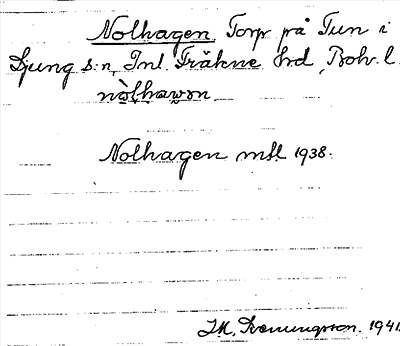 Nolhagen Torp på Tun i
Ljung s:n, Inl. Fräkne hrd, Boh. l.
nòlhawon
Nolhagen mtl 1938.
1941.